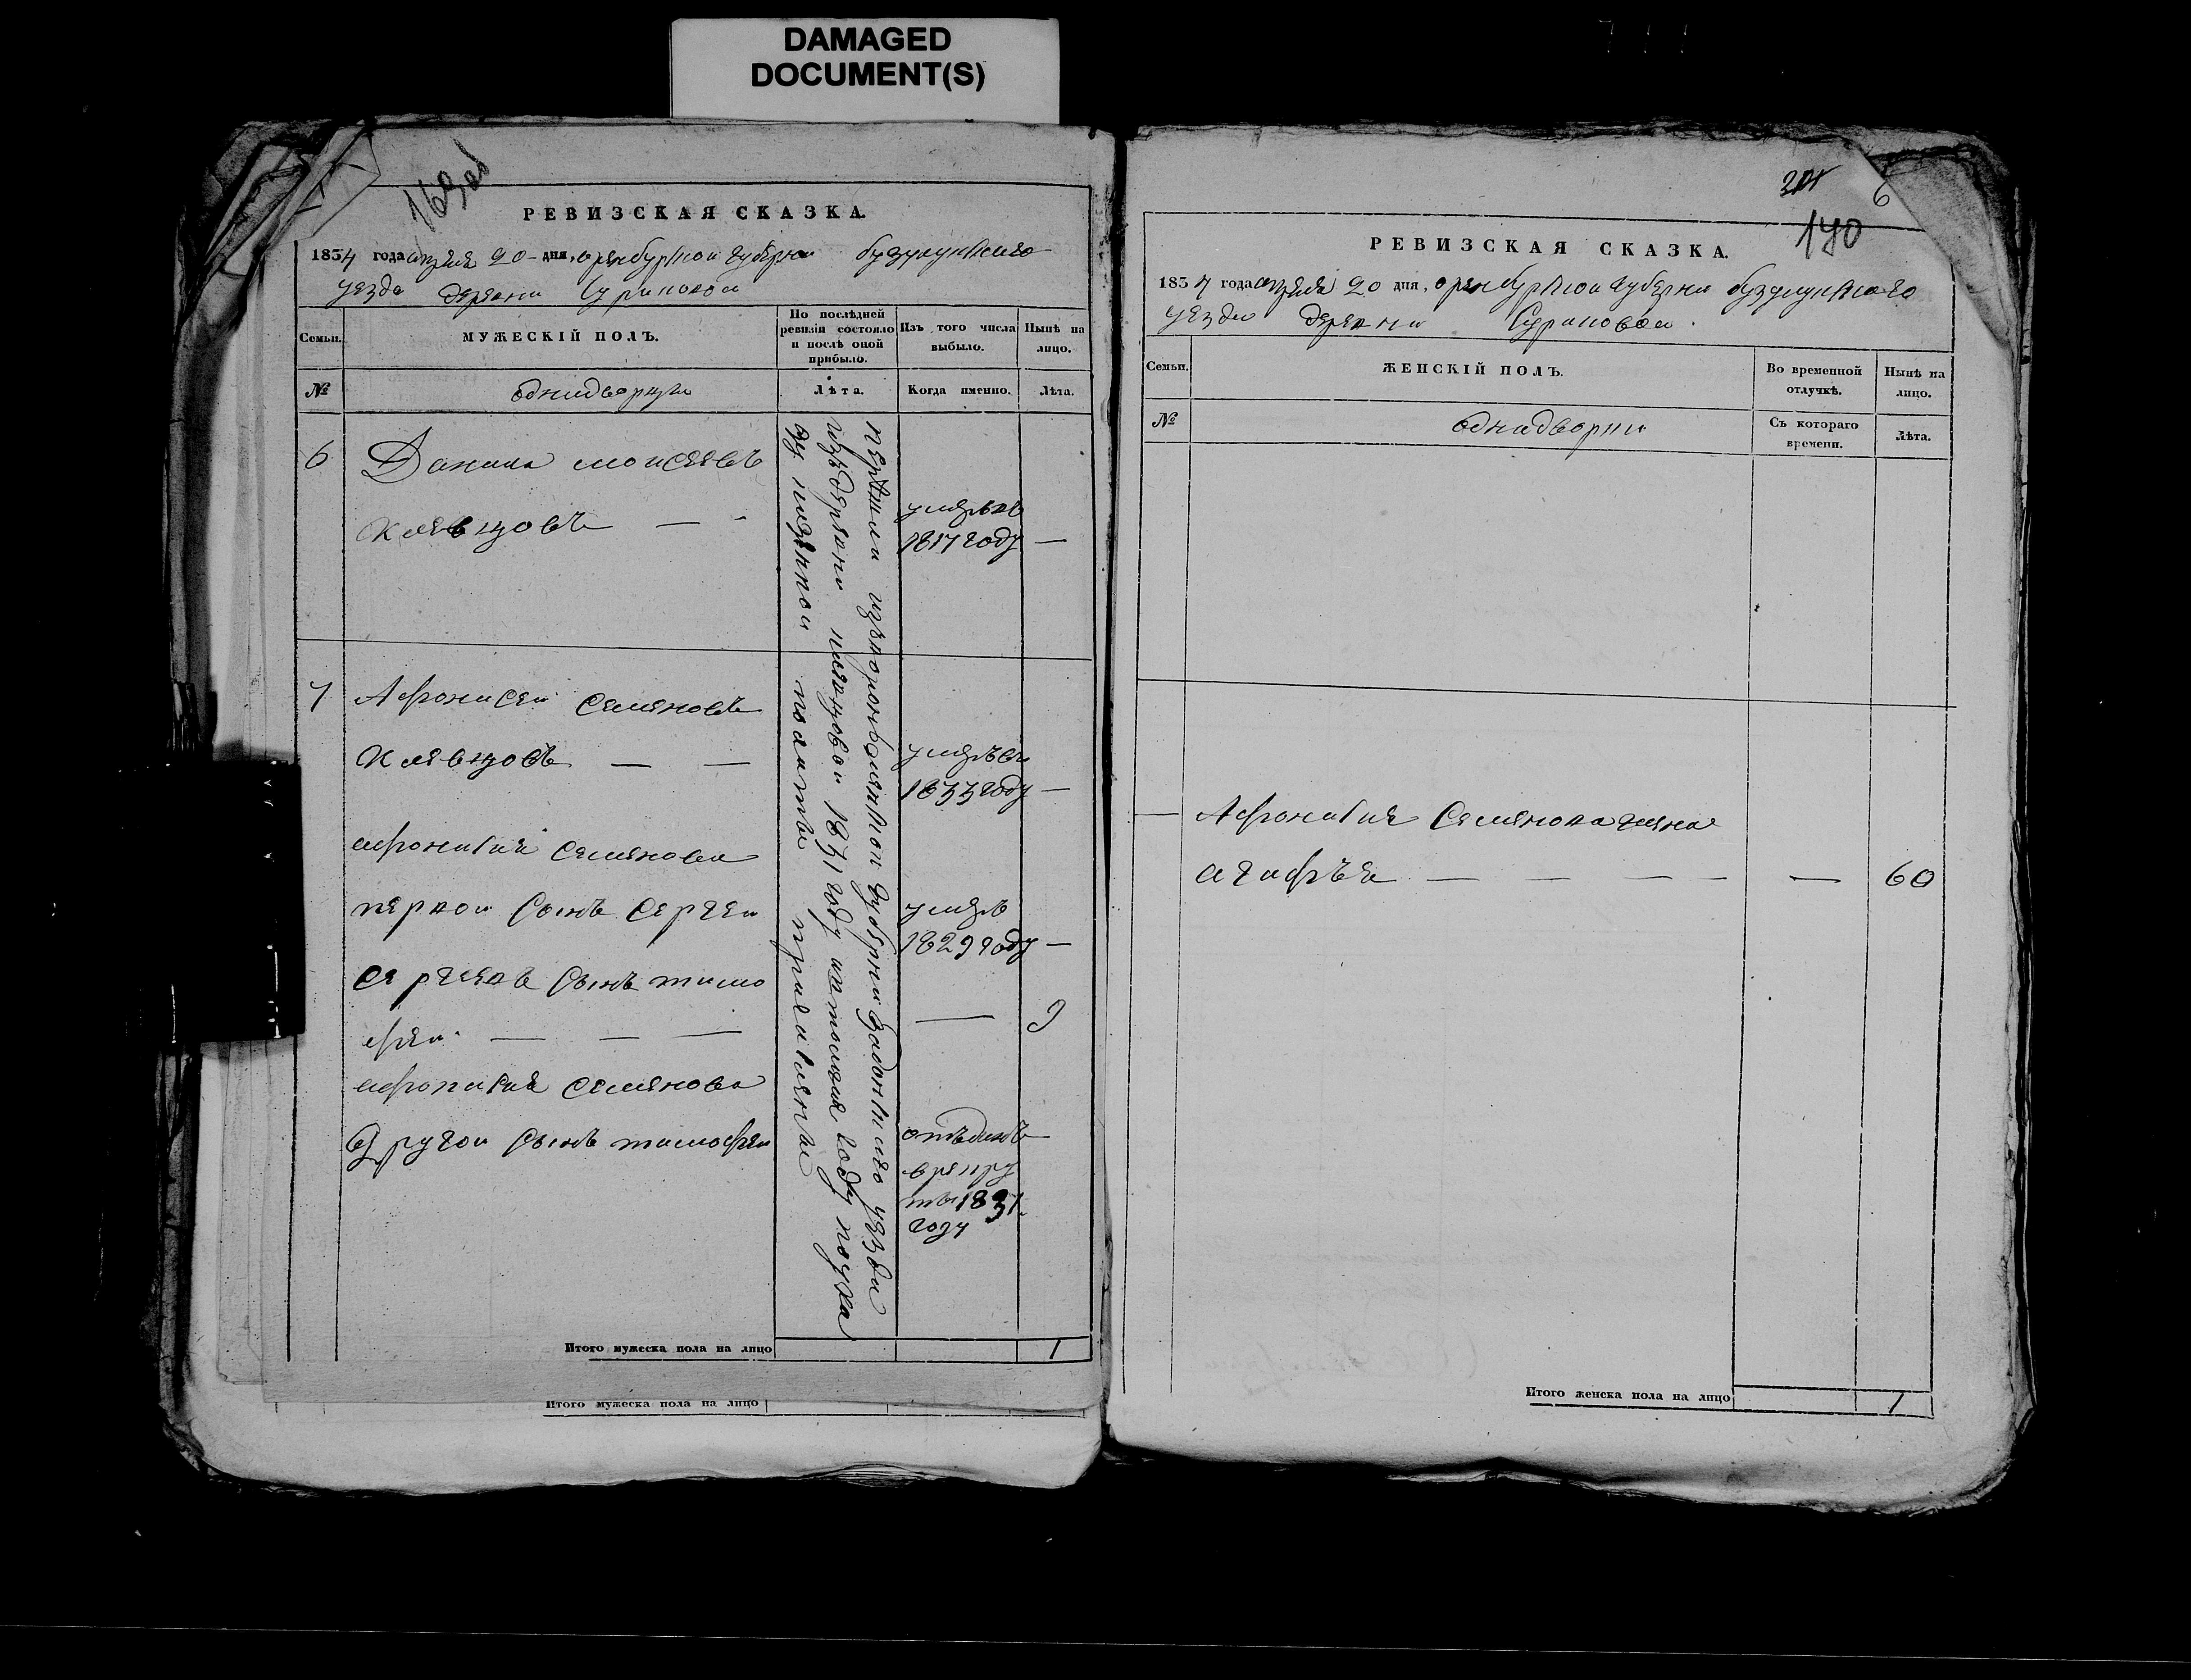 DAMAGED
DOCUMENT(S)
169об
РЕВИЗСКАЯ СКАЗКА.
1834 года апреля 20 дня, оренбурской губернии бузулукского
уезда деревни Суриковой
Семьи.
МУЖЕСКІЙ ПОЛЪ.
По послѣдней
ревизіи состояло
и послѣ оной
прибыло.
Изъ того числа
выбыло.
Нынѣ на
лицо.
№
однадворцы
Лѣта.
Когда именно.
Лѣта.
6
Данила моисеевъ
Клевцовъ — -
умеръ въ
1817 году —
7
Афонасей Семеновъ
Клевцовъ — —
умеръ въ
1833 году —
афонасия семенова
первой сынъ Сергей
умеръ
1829 году —
сергеевъ сынъ тимо
фей — — —
— 9
афонасия семенова
Другой сынъ тимофей
отъданъ
в рекру
ты 1831
году
перешли из воронежской губернии Задонского уезда
из деревни клевцовой 1831 году
зу казенной полаты причислены
Итого мужеска пола на лицо 1
Итого мужеска пола на лицо
6
190
РЕВИЗСКАЯ СКАЗКА.
1834 года апреля 20 дня, оренбурской губернии бузулукского
уезда деревни Суриковой
Семьи.
ЖЕНСКІЙ ПОЛЪ.
Во временной
отлучкѣ.
Нынѣ на
лицо.
№
однадворки
Съ котораго
времени.
Лѣта.
— Афонасия Семенова жена
агафъя — — — — — 60
Итого женска пола на лицо 1